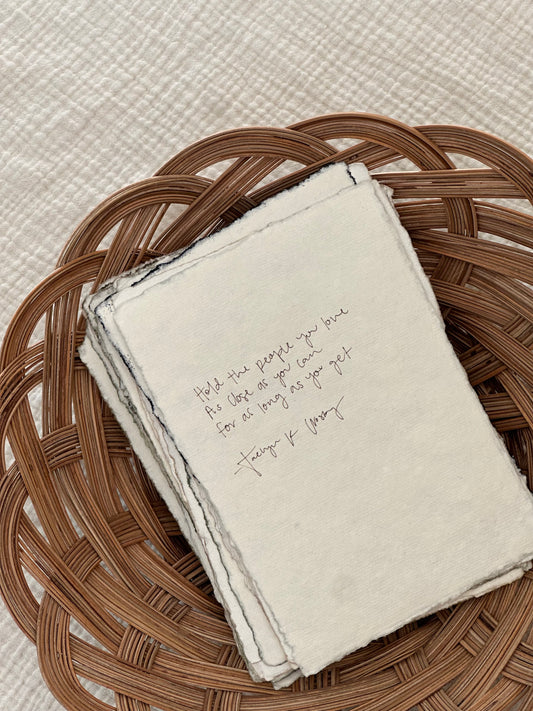 Hold the people you love
As close as you can
For as long as you get
Jaclyn K